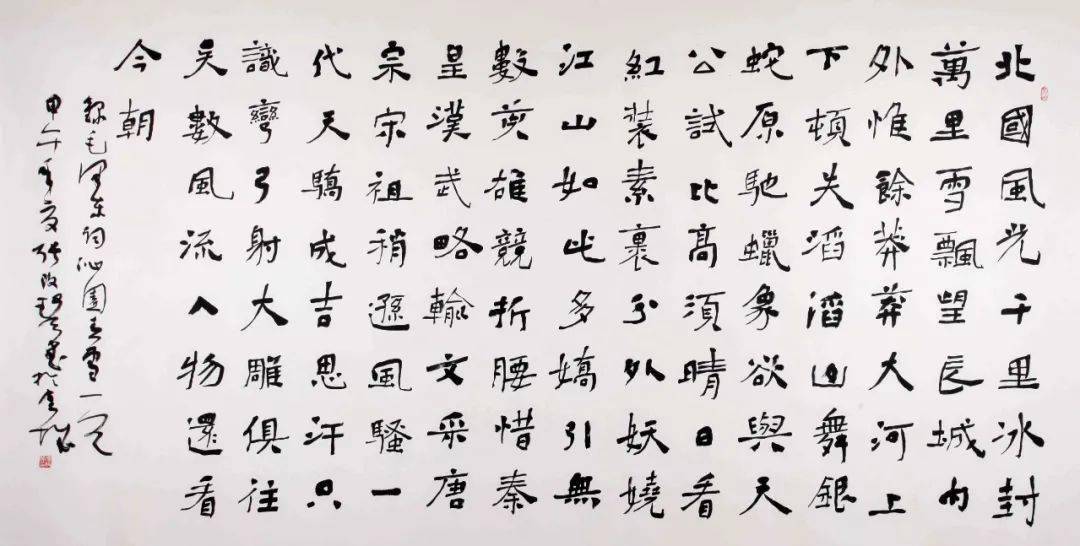 北國風光千里冰封
萬里雪飄望長城內
外惟餘莽莽大河上
下頓失滔滔山舞銀
蛇原馳蠟象欲與天
公試比高須晴日看
紅裝素裹分外妖嬈
江山如此多嬌引無
數英雄競折腰惜秦
皇漢武略輸文采唐
宗宋祖稍遜風騷一
代天驕成吉思汗只
識彎弓射大雕俱往
矣數風流人物還看
今朝
錄毛澤東詞沁園春雪一
甲午年夏張改琴書於金城